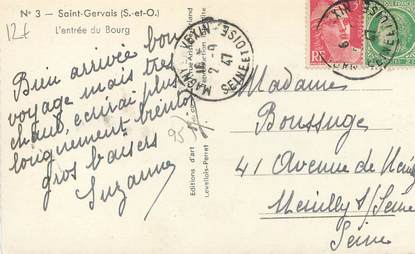 N° 3 — Saint-Gervais (S.-et-O.)
L'entrée du Bourg
12f
Bien arrivée bon
voyage mais très
chaud, ecrirai plus
longuement bientôt
gros baisers
Suzanne
95
MAGNY-EN-VEXIN
2 - 9
47
SEINE ET OISE
Editions d'art
Levallois-Perret
RF
Madame
Boussuge
41 Avenue de Neuilly
Neuilly s/Seine
Seine